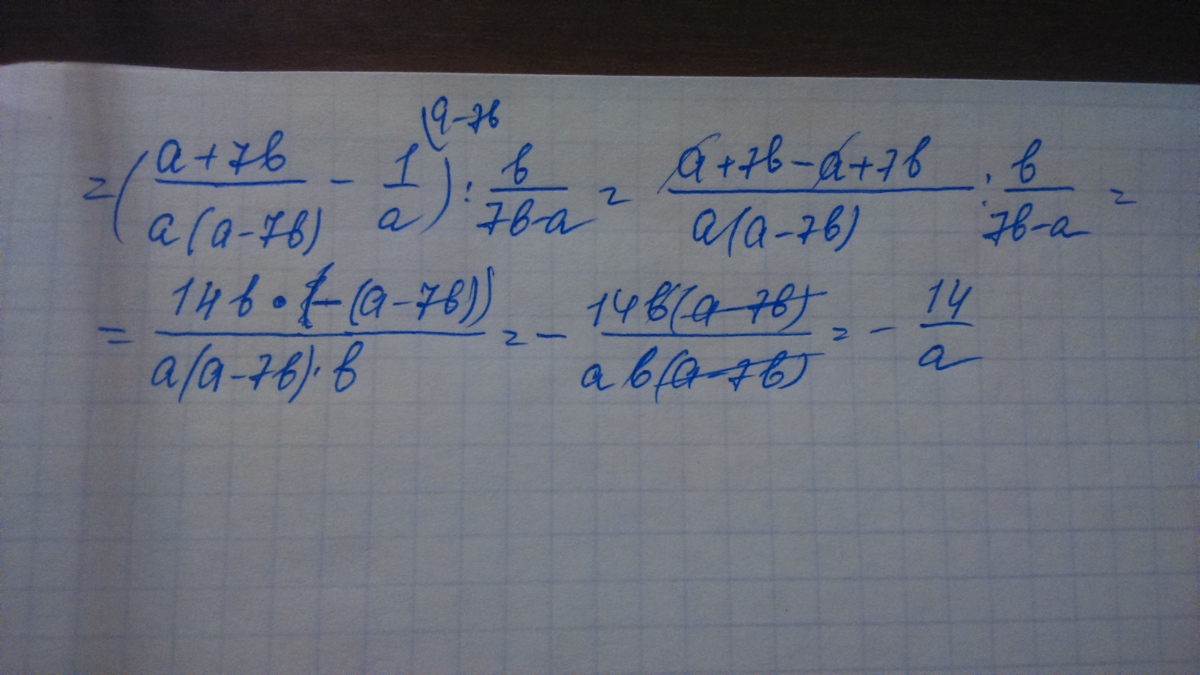 = ( (a+7b)/(a(a-7b)) - 1/a^(a-7b) ) : b/(7b-a) = (a+7b-a+7b)/(a(a-7b)) : b/(7b-a) =
= (14b • (-(a-7b)))/(a(a-7b)·b) = - (14b(a-7b))/(ab(a-7b)) = - 14/a